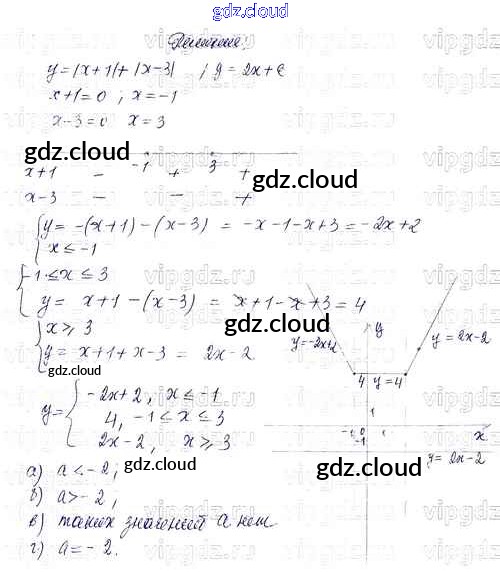 gdz.cloud
Решение:
y=|x+1|+|x-3| ; y=2x+a
x+1=0 ; x=-1
x-3=0 x=3
gdz.cloud -1 3
x+1 - + +
x-3 - - +
gdz.cloud
{ y = -(x+1)-(x-3) = -x-1-x+3 = -2x+2
x ≤ -1
{ -1 ≤ x ≤ 3
y = x+1-(x-3) = x+1-x+3 = 4
{ x ≥ 3
y = x+1+x-3 = 2x-2
gdz.cloud
gdz.cloud
y= { -2x+2, x ≤ -1
4, -1 ≤ x ≤ 3
2x-2, x ≥ 3
y
y=-2x+2
y = 2x-2
4 y=4
1
-1 0 1 x
-1
y= 2x-2
gdz.cloud
gdz.cloud
а) a<-2;
б) a>-2,
в) таких значений a нет
г) a=-2.
vipgdz.ru